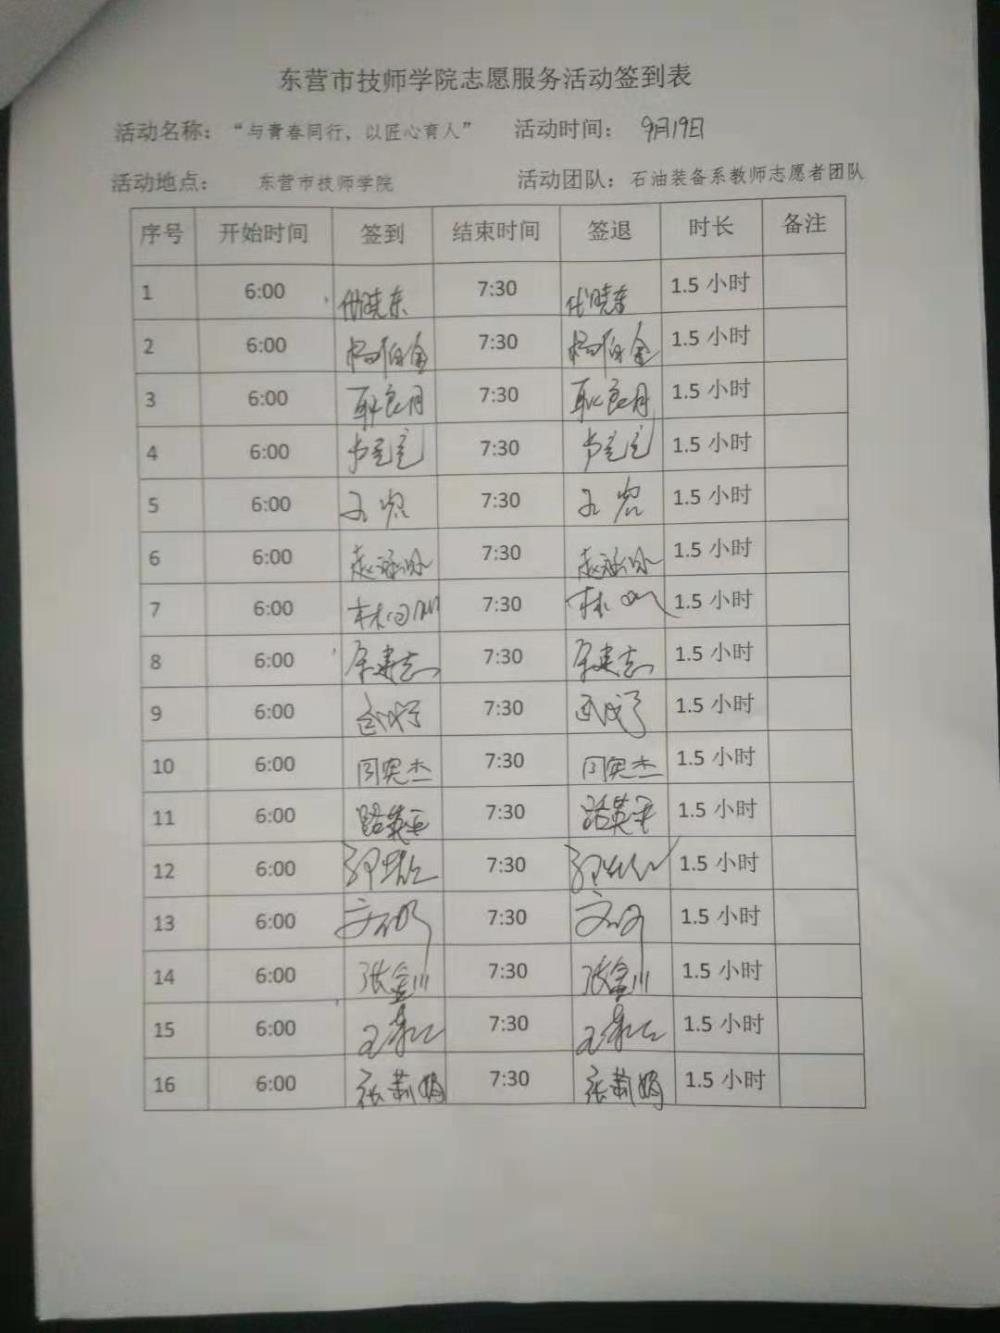 东营市技师学院志愿服务活动签到表
活动名称：“与青春同行，以匠心育人” 活动时间： 9月19日
活动地点： 东营市技师学院 活动团队：石油装备系教师志愿者团队
序号 开始时间 签到 结束时间 签退 时长 备注
1 6:00 代晓东 7:30 代晓东 1.5 小时
2 6:00 7:30 1.5 小时
3 6:00 耿良月 7:30 耿良月 1.5 小时
4 6:00 7:30 1.5 小时
5 6:00 7:30 1.5 小时
6 6:00 7:30 1.5 小时
7 6:00 7:30 1.5 小时
8 6:00 7:30 1.5 小时
9 6:00 7:30 1.5 小时
10 6:00 闫宪杰 7:30 闫宪杰 1.5 小时
11 6:00 7:30 1.5 小时
12 6:00 7:30 1.5 小时
13 6:00 7:30 1.5 小时
14 6:00 张金川 7:30 张金川 1.5 小时
15 6:00 7:30 1.5 小时
16 6:00 张莉娟 7:30 张莉娟 1.5 小时